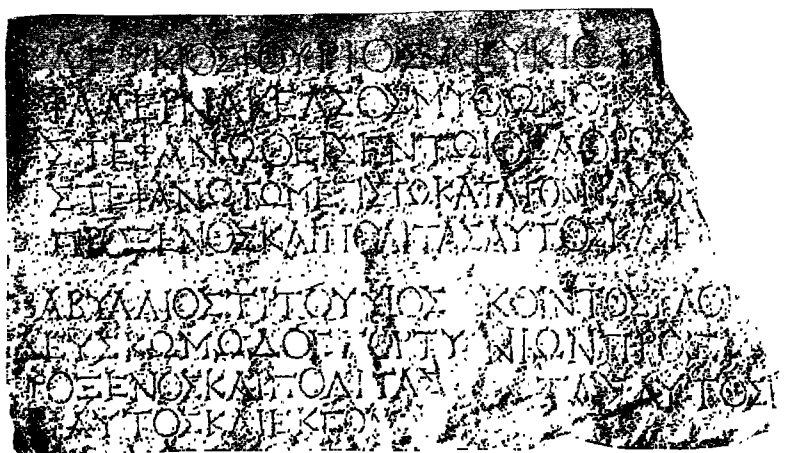 ΛΕΥΚΙΟΣΦΟΥΡΙΟΣΛΕΥΚΙΟΥ
ΦΑΛΕΡΝΑΚΕΛΣΟΣΜΥΘΩ
ΣΤΕΦΑΝΩΘΕΙΣΕΝΤΩΙ
ΣΤΕΦΑΝΩΤΩΜΕ ΙΣΤΩΚΑΤΑΤΟΝΝΟΜΟ
ΠΡΟΞΕΝΟΣΚΑΙΠΟΛΙΤΑΣΑΥΤΟΣΚΑΙ
ΑΒΥΛΛΙΟΣΤΙΤΟΥΥΙΟΣ ΚΟΙΝΤΟΣ
ΕΥΣΚΩΜΩΔΟΓ ΓΟΡΤΥ ΝΙΩΝΠΡΟΞ
ΡΟΞΕΝΟΣΚΑΙΠΟΛΙΤΑΣ ΤΑΣΑΥΤΟΣ
ΑΥΤΟΣΚΑΙΕΚΓΟΝ